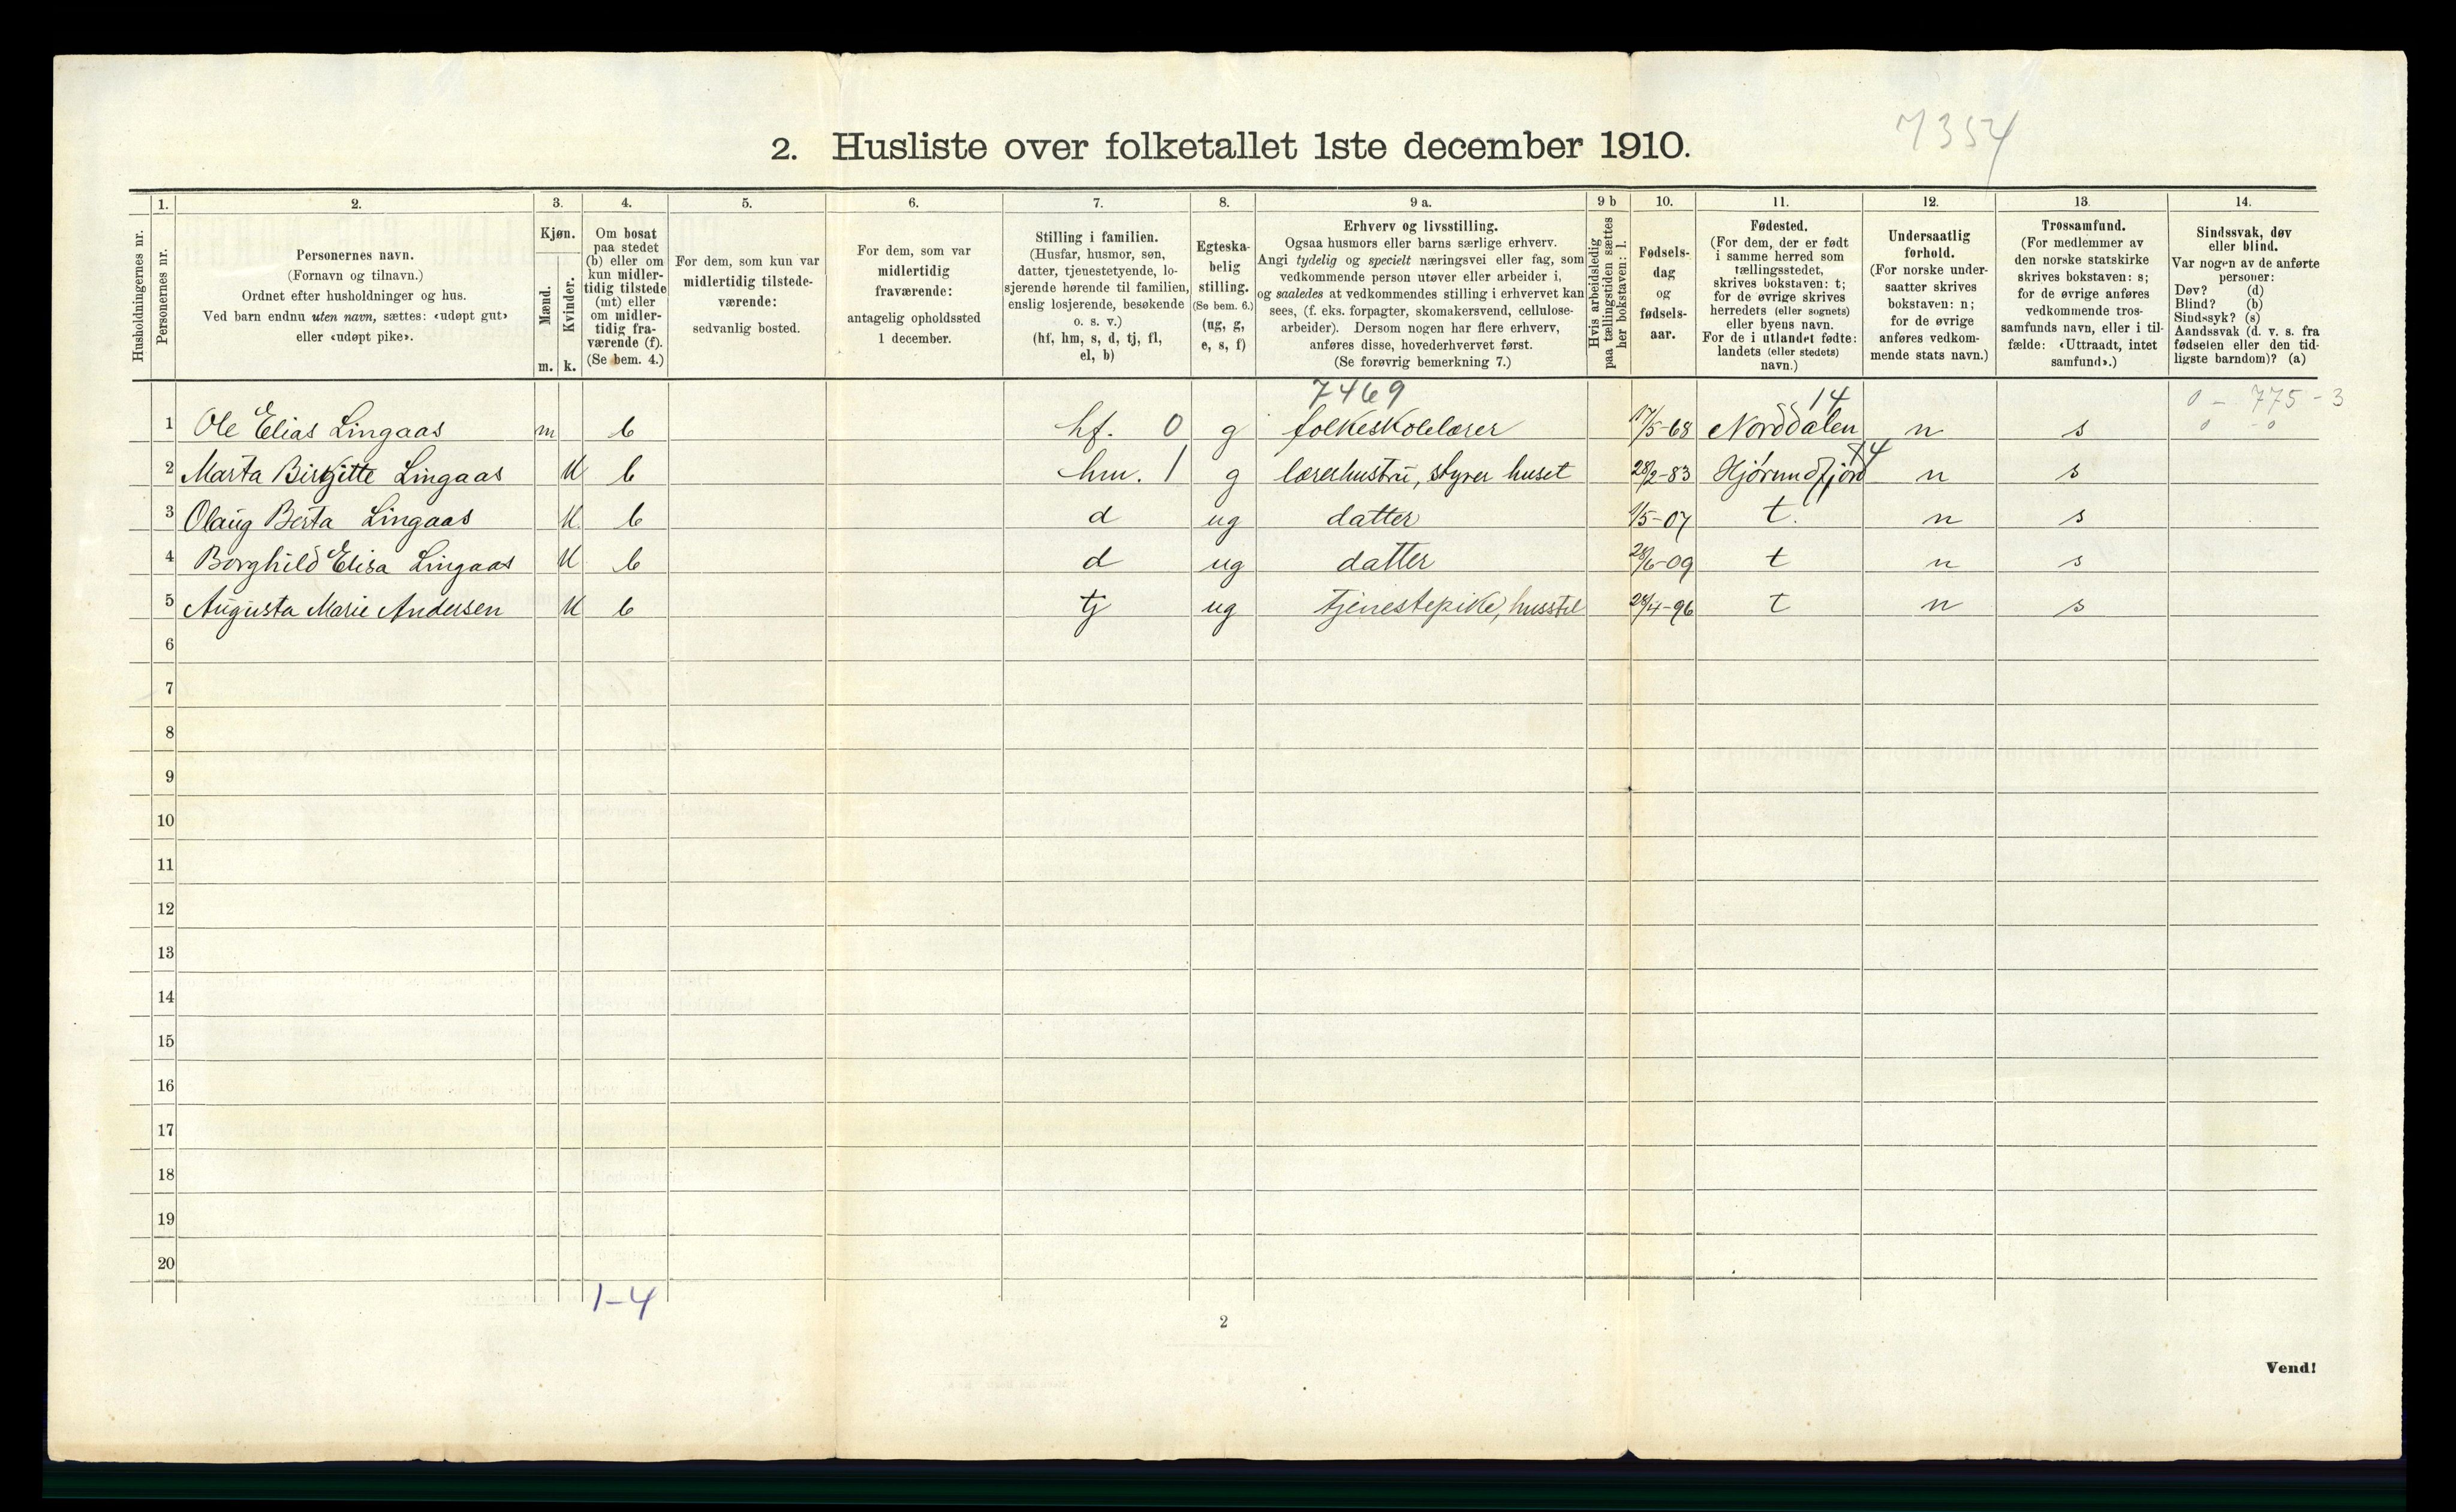 7354
2. Husliste over folketallet 1ste december 1910.
Husholdningernes nr.
1. 2. 3. 4. 5. 6. 7. 8. 9 a. 9 b 10. 11. 12. 13. 14.
Personernes nr.
Personernes navn.
(Fornavn og tilnavn.)
Ordnet efter husholdninger og hus.
Ved barn endnu uten navn, sættes: «udøpt gut»
eller «udøpt pike».
Kjøn.
Mænd.
Kvinder.
m. k.
Om bosat
paa stedet
(b) eller om
kun midler-
tidig tilstede
(mt) eller
om midler-
tidig fra-
værende (f).
(Se bem. 4.)
For dem, som kun var
midlertidig tilstede-
værende:
sedvanlig bosted.
For dem, som var
midlertidig
fraværende:
antagelig opholdssted
1 december.
Stilling i familien.
(Husfar, husmor, søn,
datter, tjenestetyende, lo-
sjerende hørende til familien,
enslig losjerende, besøkende
o. s. v.)
(hf, hm, s, d, tj, fl,
el, b)
Egteska-
belig
stilling.
(Se bem. 6.)
(ug, g,
e, s, f)
Erhverv og livsstilling.
Ogsaa husmors eller barns særlige erhverv.
Angi tydelig og specielt næringsvei eller fag, som
vedkommende person utøver eller arbeider i,
og saaledes at vedkommendes stilling i erhvervet kan
sees, (f. eks. forpagter, skomakersvend, cellulose-
arbeider). Dersom nogen har flere erhverv,
anføres disse, hovederhvervet først.
(Se forøvrig bemerkning 7.)
Hvis arbeidsledig
paa tællingstiden sættes
her bokstaven: l.
Fødsels-
dag
og
fødsels-
aar.
Fødested.
(For dem, der er født
i samme herred som
tællingsstedet,
skrives bokstaven: t;
for de øvrige skrives
herredets (eller sognets)
eller byens navn.
For de i utlandet fødte:
landets (eller stedets)
navn.)
Undersaatlig
forhold.
(For norske under-
saatter skrives
bokstaven: n;
for de øvrige
anføres vedkom-
mende stats navn.)
Trossamfund.
(For medlemmer av
den norske statskirke
skrives bokstaven: s;
for de øvrige anføres
vedkommende tros-
samfunds navn, eller i til-
fælde: «Uttraadt, intet
samfund».)
Sindssvak, døv
eller blind.
Var nogen av de anførte
personer:
Døv? (d)
Blind? (b)
Sindssyk? (s)
Aandssvak (d. v. s. fra
fødselen eller den tid-
ligste barndom)? (a)
7469 14 0 - 775 - 3
1 Ole Elias Lingaas m b hf. 0 g folkeskolelærer 17/5-68 Norddalen n s 0 - 0
14
2 Marta Birgitte Lingaas K b hm. 1 g lærerhustru, styrer huset 28/2-83 Hjørundfjord n s
3 Olaug Berta Lingaas K b d ug datter 1/5-07 t. n s
4 Borghild Elisa Lingaas K b d ug datter 28/6-09 t n s
5 Augusta Marie Andersen K b tj ug tjenestepike, husstel 28/4-96 t n s
6
7
8
9
10
11
12
13
14
15
16
17
18
19
20
1-4
2
Vend!